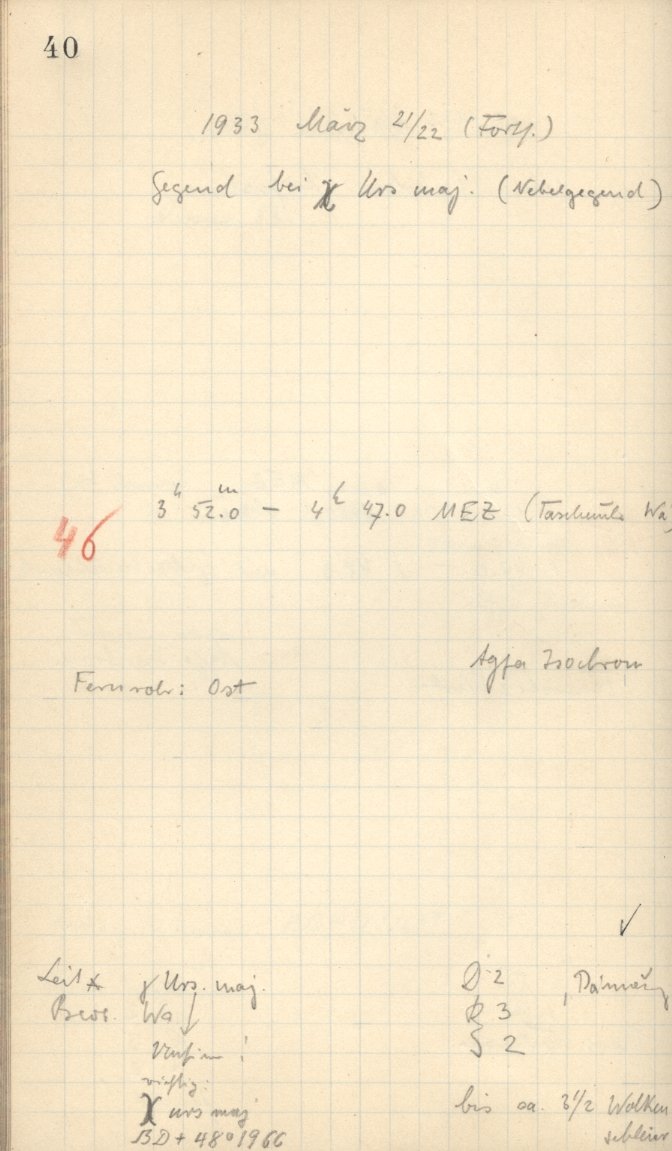 40
1933 März 21/22 (Forts.)
Gegend bei χ Urs maj. (Nebelgegend)
3h 52.0m — 4h 47.0 MEZ (Taschenuhr Wa
46
Agfa Isochrom
Fernrohr: Ost
✓
Leit * γ Urs. maj. D 2
Beob. Wa R 3
! S 2
richtig:
χ urs maj bis ca. 3 1/2 Wolken
BD + 48° 1966 schleier